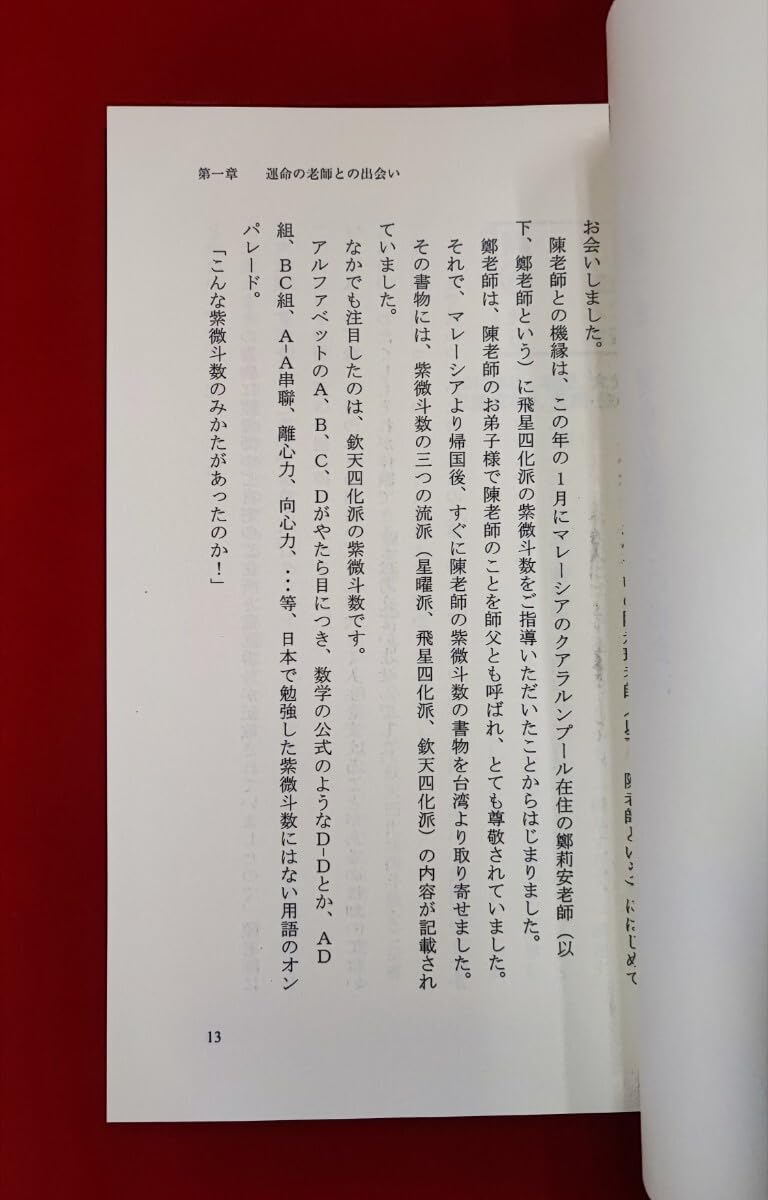 第一章 運命の老師との出会い
陳老師という）にはじめて
お会いしました。
陳老師との機縁は、この年の1月にマレーシアのクアラルンプール在住の鄭莉安老師（以
下、鄭老師という）に飛星四化派の紫微斗数をご指導いただいたことからはじまりました。
鄭老師は、陳老師のお弟子様で陳老師のことを師父とも呼ばれ、とても尊敬されていました。
それで、マレーシアより帰国後、すぐに陳老師の紫微斗数の書物を台湾より取り寄せました。
その書物には、紫微斗数の三つの流派（星曜派、飛星四化派、欽天四化派）の内容が記載され
ていました。
なかでも注目したのは、欽天四化派の紫微斗数です。
アルファベットのA、B、C、Dがやたら目につき、数学の公式のようなD−Dとか、AD
組、BC組、A−A串聯、離心力、向心力、・・・等、日本で勉強した紫微斗数にはない用語のオン
パレード。
「こんな紫微斗数のみかたがあったのか！」
13